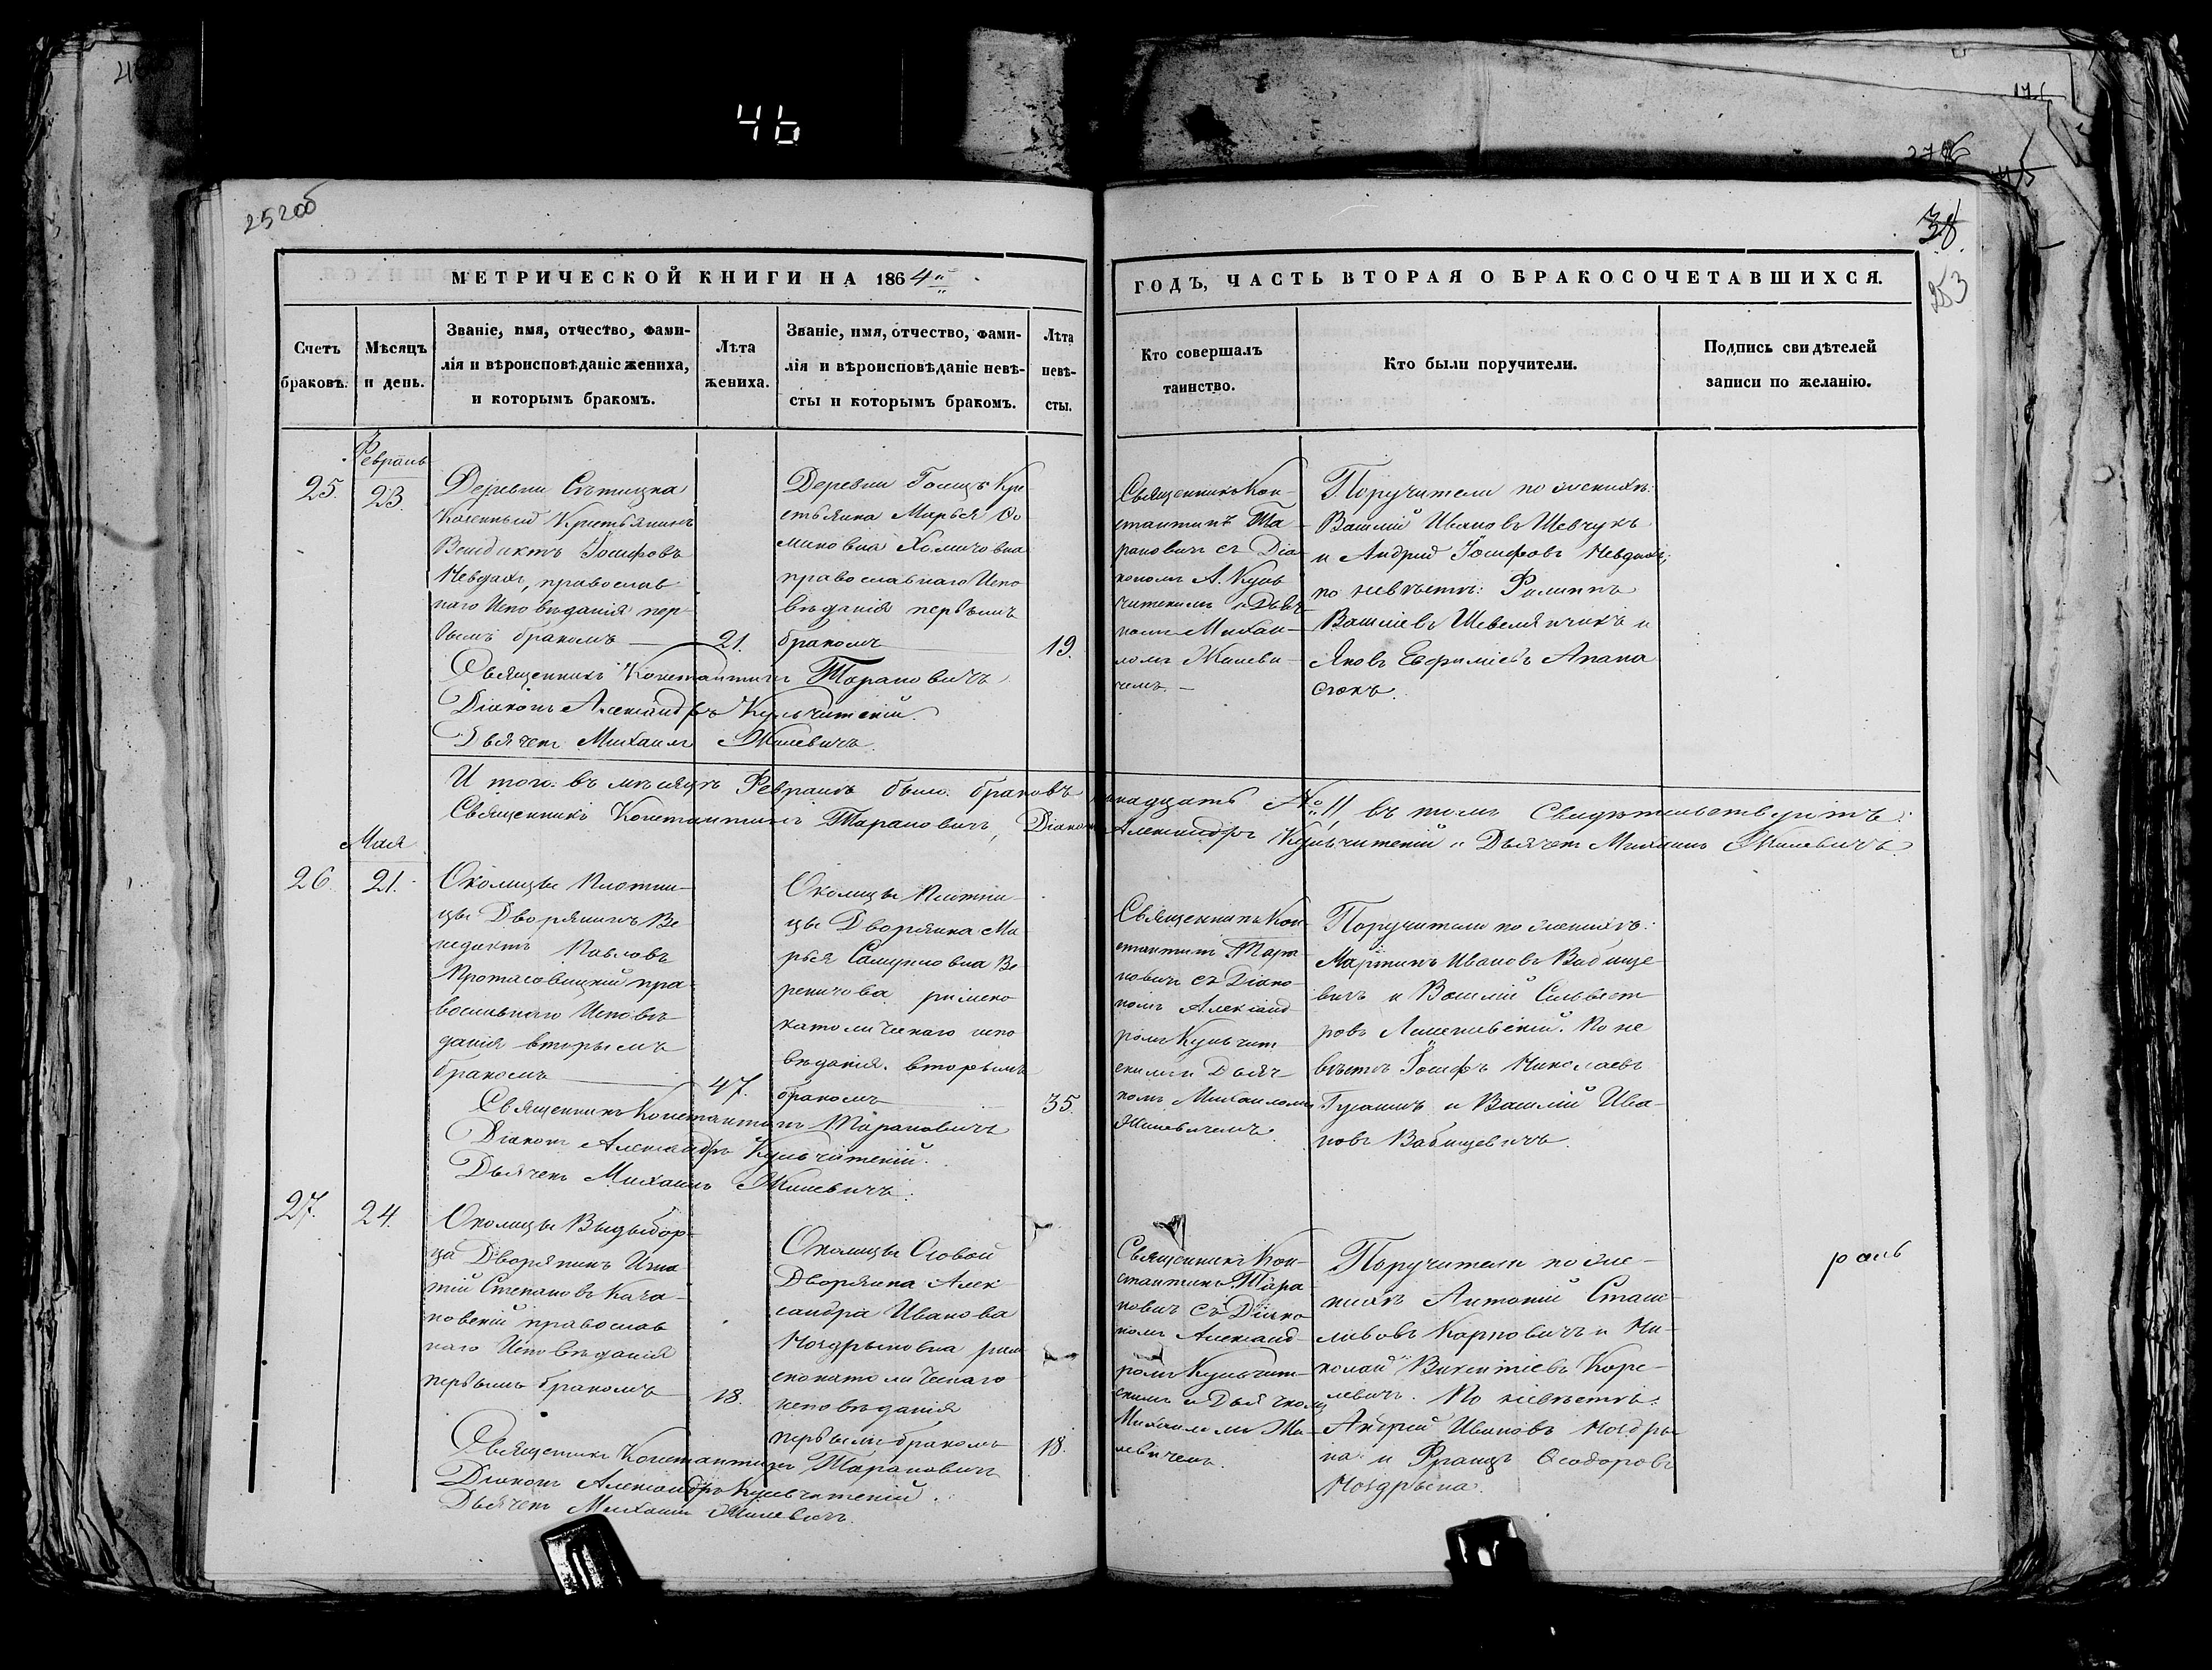 46
252об
38
253
МЕТРИЧЕСКОЙ КНИГИ НА 1864й
ГОДЪ, ЧАСТЬ ВТОРАЯ О БРАКОСОЧЕТАВШИХСЯ.
Счетъ браковъ.
Мѣсяцъ и день.
Званіе, имя, отчество, фами-
лія и вѣроисповѣданіе жениха,
и которымъ бракомъ.
Лѣта жениха.
Званіе, имя, отчество, фами-
лія и вѣроисповѣданіе невѣ-
сты и которымъ бракомъ.
Лѣта невѣ-
сты.
Кто совершалъ
таинство.
Кто были поручители.
Подпись свидѣтелей
записи по желанію.
Февраль
25.
23.
Деревни
Казенный Крестьянинъ
Венедиктъ Іосифовъ
Невдахъ, православ
наго Исповѣданія пер-
вымъ бракомъ
21.
Деревни Кре
стьянка Марья Ѳо
миновна Хомичовна
православнаго Испо
вѣданія первымъ
бракомъ
19.
Священникъ Кон-
стантинъ Та
рановичъ съ Діа
кономъ А. Куль
читскимъ и Дьяч
комъ Михаи-
ломъ Жилеви
чемъ.
Поручители по женихѣ:
Василій Ивановъ Шевчукъ
и Андрей Іосифовъ Невдахъ;
по невѣстѣ: Филиппъ
Василіевъ и
Яковъ Евфиміевъ Апана
сюкъ.
Священникъ Константинъ Тарановичъ
Діаконъ Александръ Кульчитскій.
Дьячекъ Михаилъ Жилевичъ.
Итого въ мѣсяцѣ Февралѣ было браковъ надцать № 11 въ томъ Свидѣтельствуютъ:
Священникъ Константинъ Тарановичъ, Діаконъ Александръ Кульчитскій и Дьячекъ Михаилъ Жилевичъ.
Мая
26.
21.
Околицы Плотни-
цы Дворянинъ Ве
недиктъ Павловъ
Протасовицкій пра-
вославнаго Исповѣ
данія вторымъ
бракомъ
47.
Околицы Плотни
цы Дворянка Ма
рья Самуиловна Ве
реничова римско
католическаго испо
вѣданія. вторымъ
бракомъ
35.
Священникъ Кон
стантинъ Тара
новичъ съ Діако
номъ Александ
ромъ Кульчит
скимъ и Дьяч-
комъ Михаиломъ
Жилевичемъ.
Поручители по женихѣ:
Мартинъ Ивановъ Бабище
вичъ и Василій Сильвест
ровъ По не
вѣстѣ Іосифъ Николаевъ
и Василій Ива-
новъ Бабищевичъ.
Священникъ Константинъ Тарановичъ
Діаконъ Александръ Кульчитскій.
Дьячекъ Михаилъ Жилевичъ.
27.
24.
Околицы Выдыбор-
ца Дворянинъ Игна
тій Степановъ Кача-
новскій православ
наго Исповѣданія
первымъ бракомъ
18.
Околицы Осовой
Дворянка Алек-
сандра Иванова
Ноздрыновна рим
скокатолическаго
исповѣданія
первымъ бракомъ
18.
Священникъ Кон-
стантинъ Тара
новичъ съ Діако
номъ Александ-
ромъ Кульчит-
скимъ и Дьячкомъ
Михаиломъ Жи-
левичемъ.
Поручители по же-
нихѣ Антоній Стани-
славовъ Карповичъ и Ни-
колай Викентіевъ Коре-
левичъ. По невѣстѣ:
Андрей Ивановъ Ноздры-
на и Францъ Ѳеодоровъ
Ноздрына.
Священникъ Константинъ Тарановичъ
Діаконъ Александръ Кульчитскій.
Дьячекъ Михаилъ Жилевичъ.